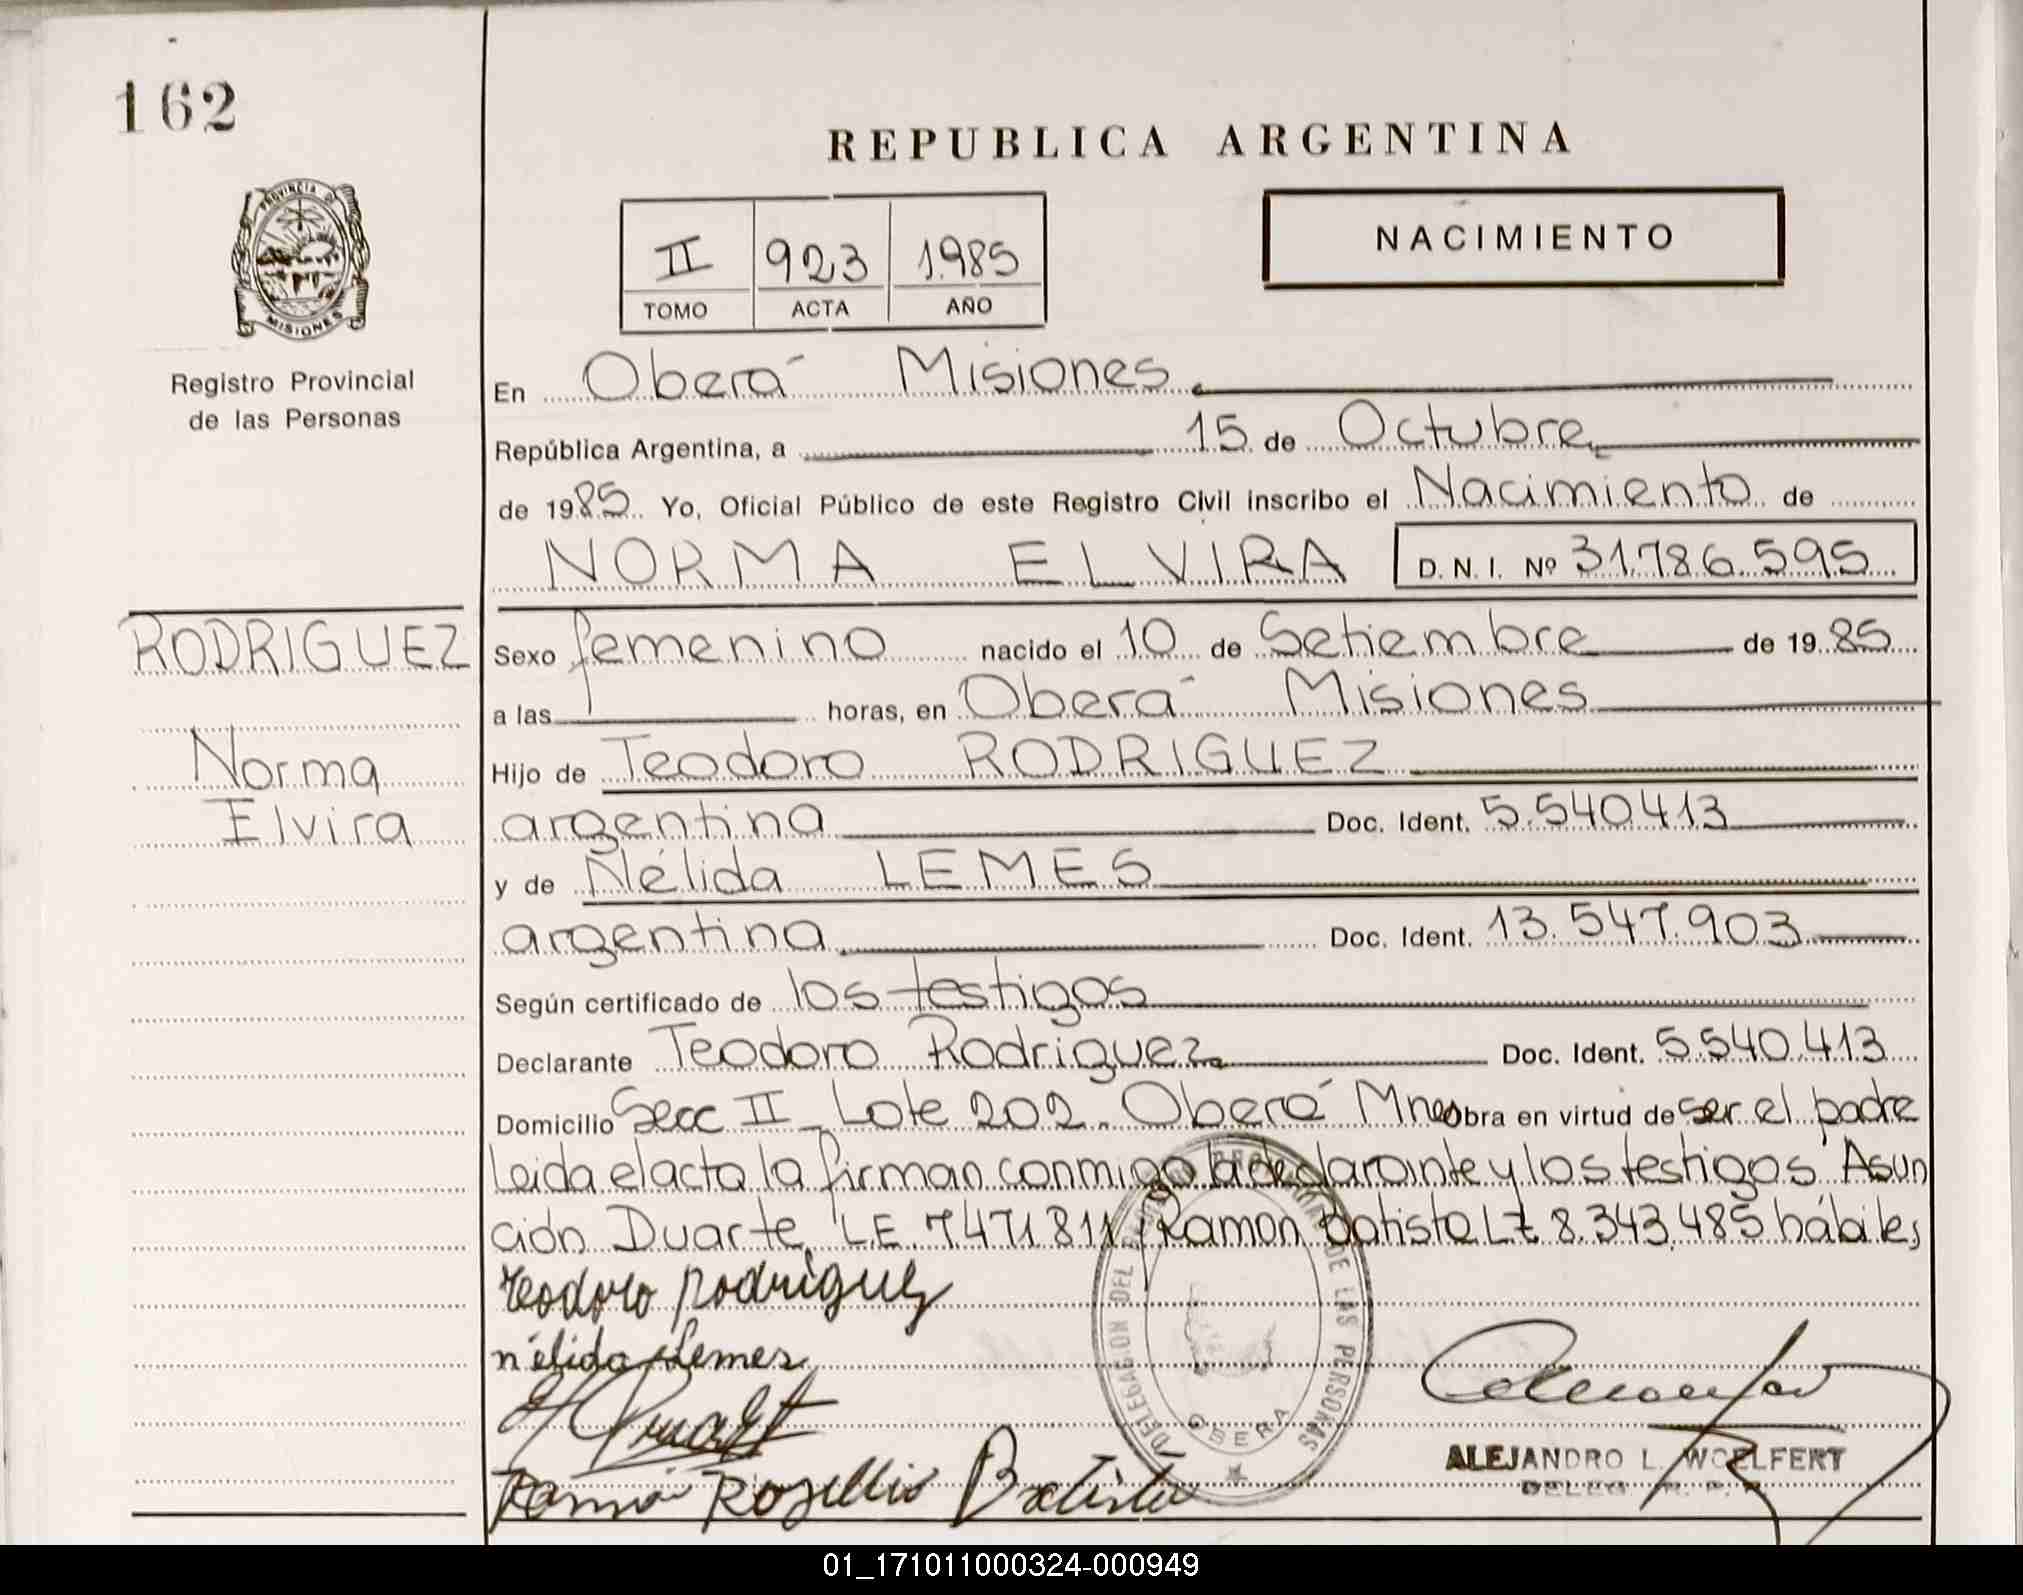 162
REPUBLICA ARGENTINA
PROVINCIA DE MISIONES
II 923 1.985
TOMO ACTA AÑO
NACIMIENTO
Registro Provincial
de las Personas
En Oberá Misiones
República Argentina, a 15 de Octubre
de 1985 Yo, Oficial Público de este Registro Civil inscribo el Nacimiento de
NORMA ELVIRA D. N. I. Nº 31.786.595
RODRIGUEZ
Norma
Elvira
Sexo femenino nacido el 10 de Setiembre de 1985
a las horas, en Oberá Misiones
Hijo de Teodoro RODRIGUEZ
argentina Doc. Ident. 5.540.413
y de Nélida LEMES
argentina Doc. Ident. 13.547.903
Según certificado de los testigos
Declarante Teodoro Rodriguez Doc. Ident. 5.540.413
Domicilio Secc II - Lote 202. Oberá Mnes obra en virtud de ser el padre
Leida el acta la firman conmigo la declarante y los testigos Asun
ción Duarte, LE. 7471811 y Ramon Batista LE 8.343.485 hábiles
Teodoro Rodriguez
nélida Lemes
Ramón Batista
DELEGACION DEL REGISTRO PROVINCIAL DE LAS PERSONAS
OBERA
ALEJANDRO L. WOELFERT
DELEG. R. P. P.
01_171011000324-000949